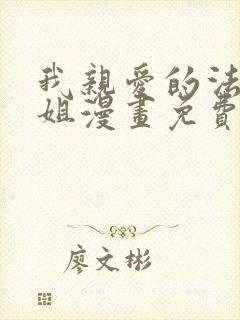 我親愛的法
姐漫畫免費
廖文彬